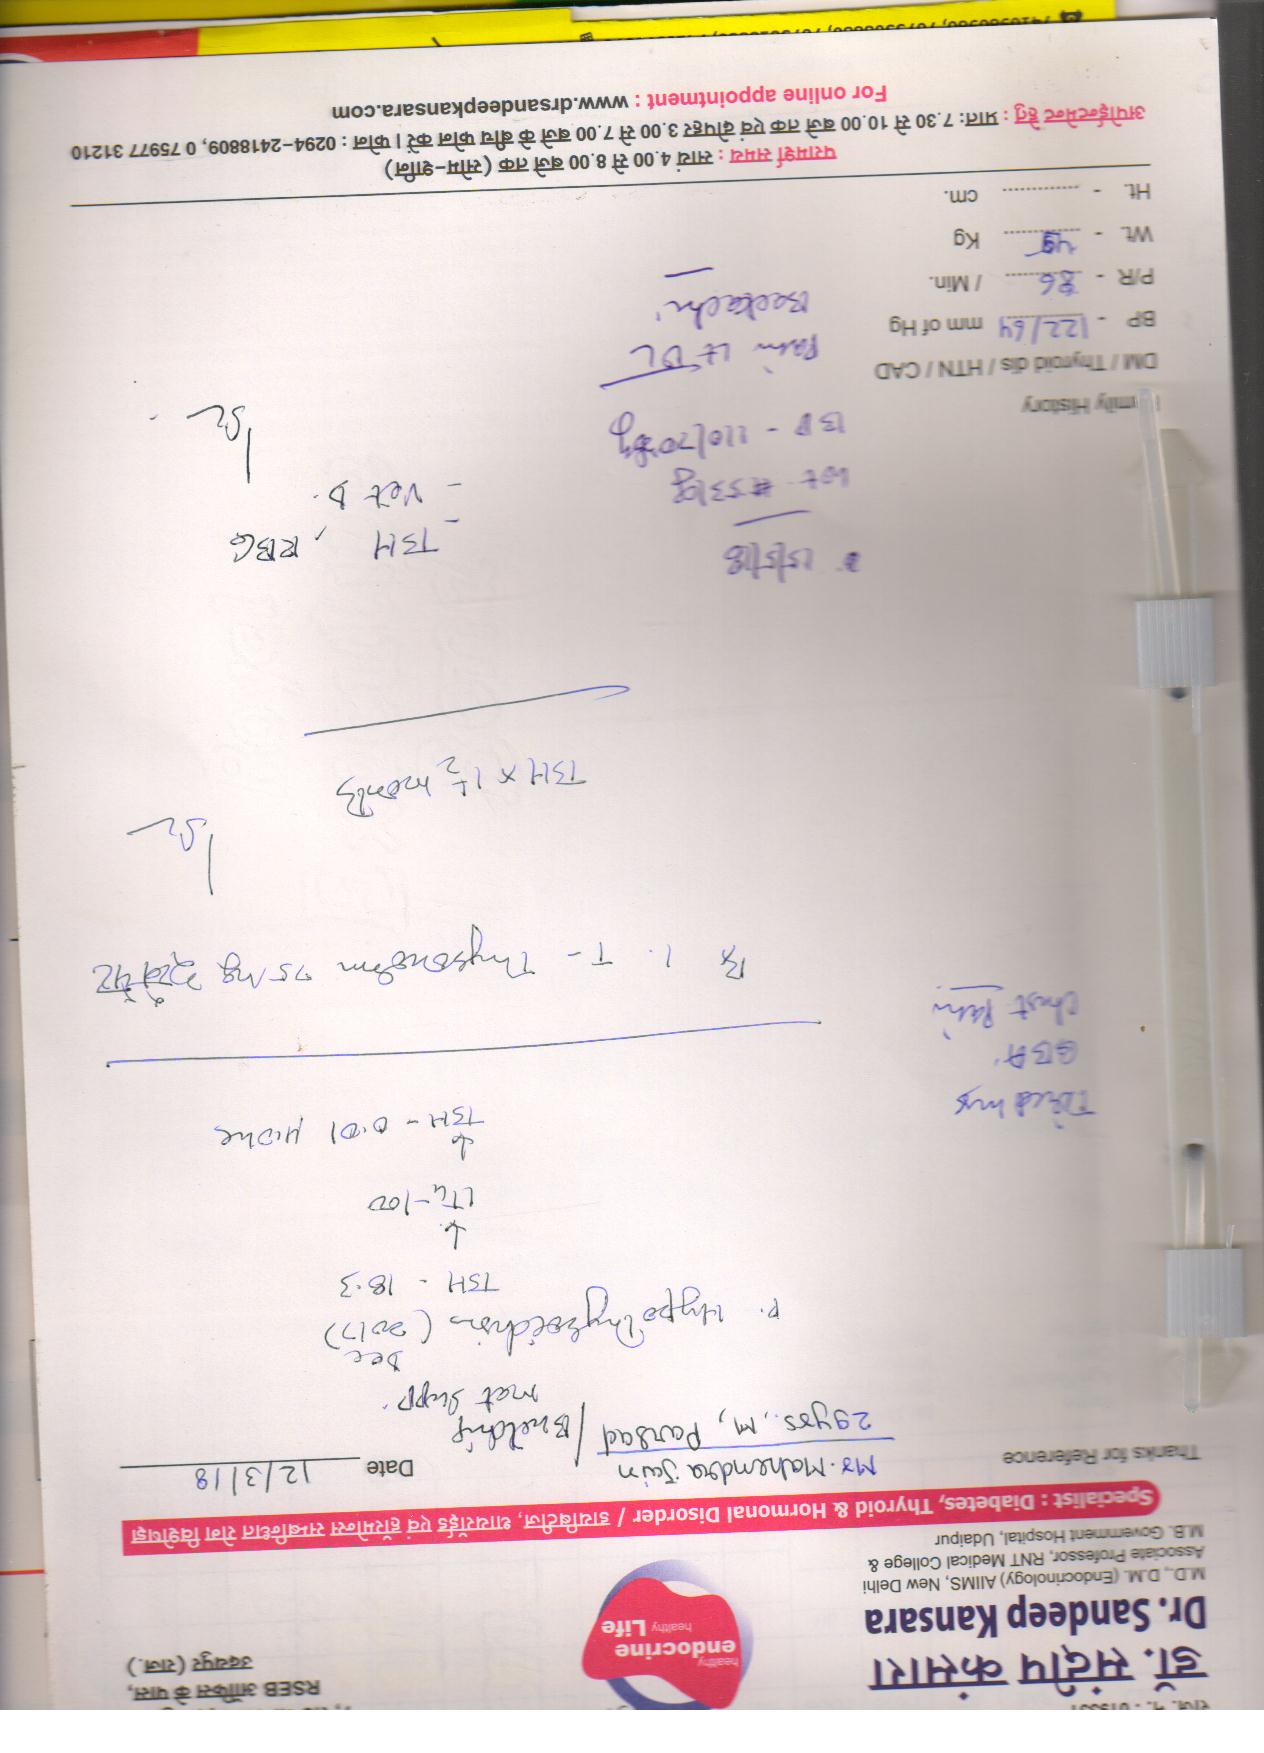 रजि. नं. : 019551
डॉ. संदीप कंसारा
Dr. Sandeep Kansara
M.D., D.M. (Endocrinology) AIIMS, New Delhi
Associate Professor, RNT Medical College &
M.B. Government Hospital, Udaipur
healthy
endocrine
healthy Life
RSEB ऑफिस के पास,
उदयपुर (राज.)
Specialist : Diabetes, Thyroid & Hormonal Disorder / डायबिटीज, थायरॉईड एवं हॉरमोन्स सम्बन्धित रोग विशेषज्ञ
Thanks for Reference
Mr. Mahendra Jain
Date 12/3/18
29yrs., M, Parsad / Building
mat supp.
Dec
P. Hypothyroidism (2017)
TSH - 18.3
↓
LT4-100
↓
TSH - 0.01
Tiredness
GBA
Chest Pain
Rx 1. T- Thyronorm 75 mg
TSH x 1 1/2 month
15/5/18
TSH, RBG
- Vit D.
Wt. 53kg
BP - 110/70
Pain Lt
Backache
Family History
DM / Thyroid dis / HTN / CAD
BP - 122/64 mm of Hg
P/R - 86 / Min.
Wt. - Kg
Ht. - ............... cm.
परामर्श समय : सायं 4.00 से 8.00 बजे तक (सोम-शनि)
अपॉईन्टमेन्ट हेतु : प्रातः 7.30 से 10.00 बजे तक एवं दोपहर 3.00 से 7.00 बजे के बीच फोन करें। फोन : 0294-2418809, 0 75977 31210
For online appointment : www.drsandeepkansara.com